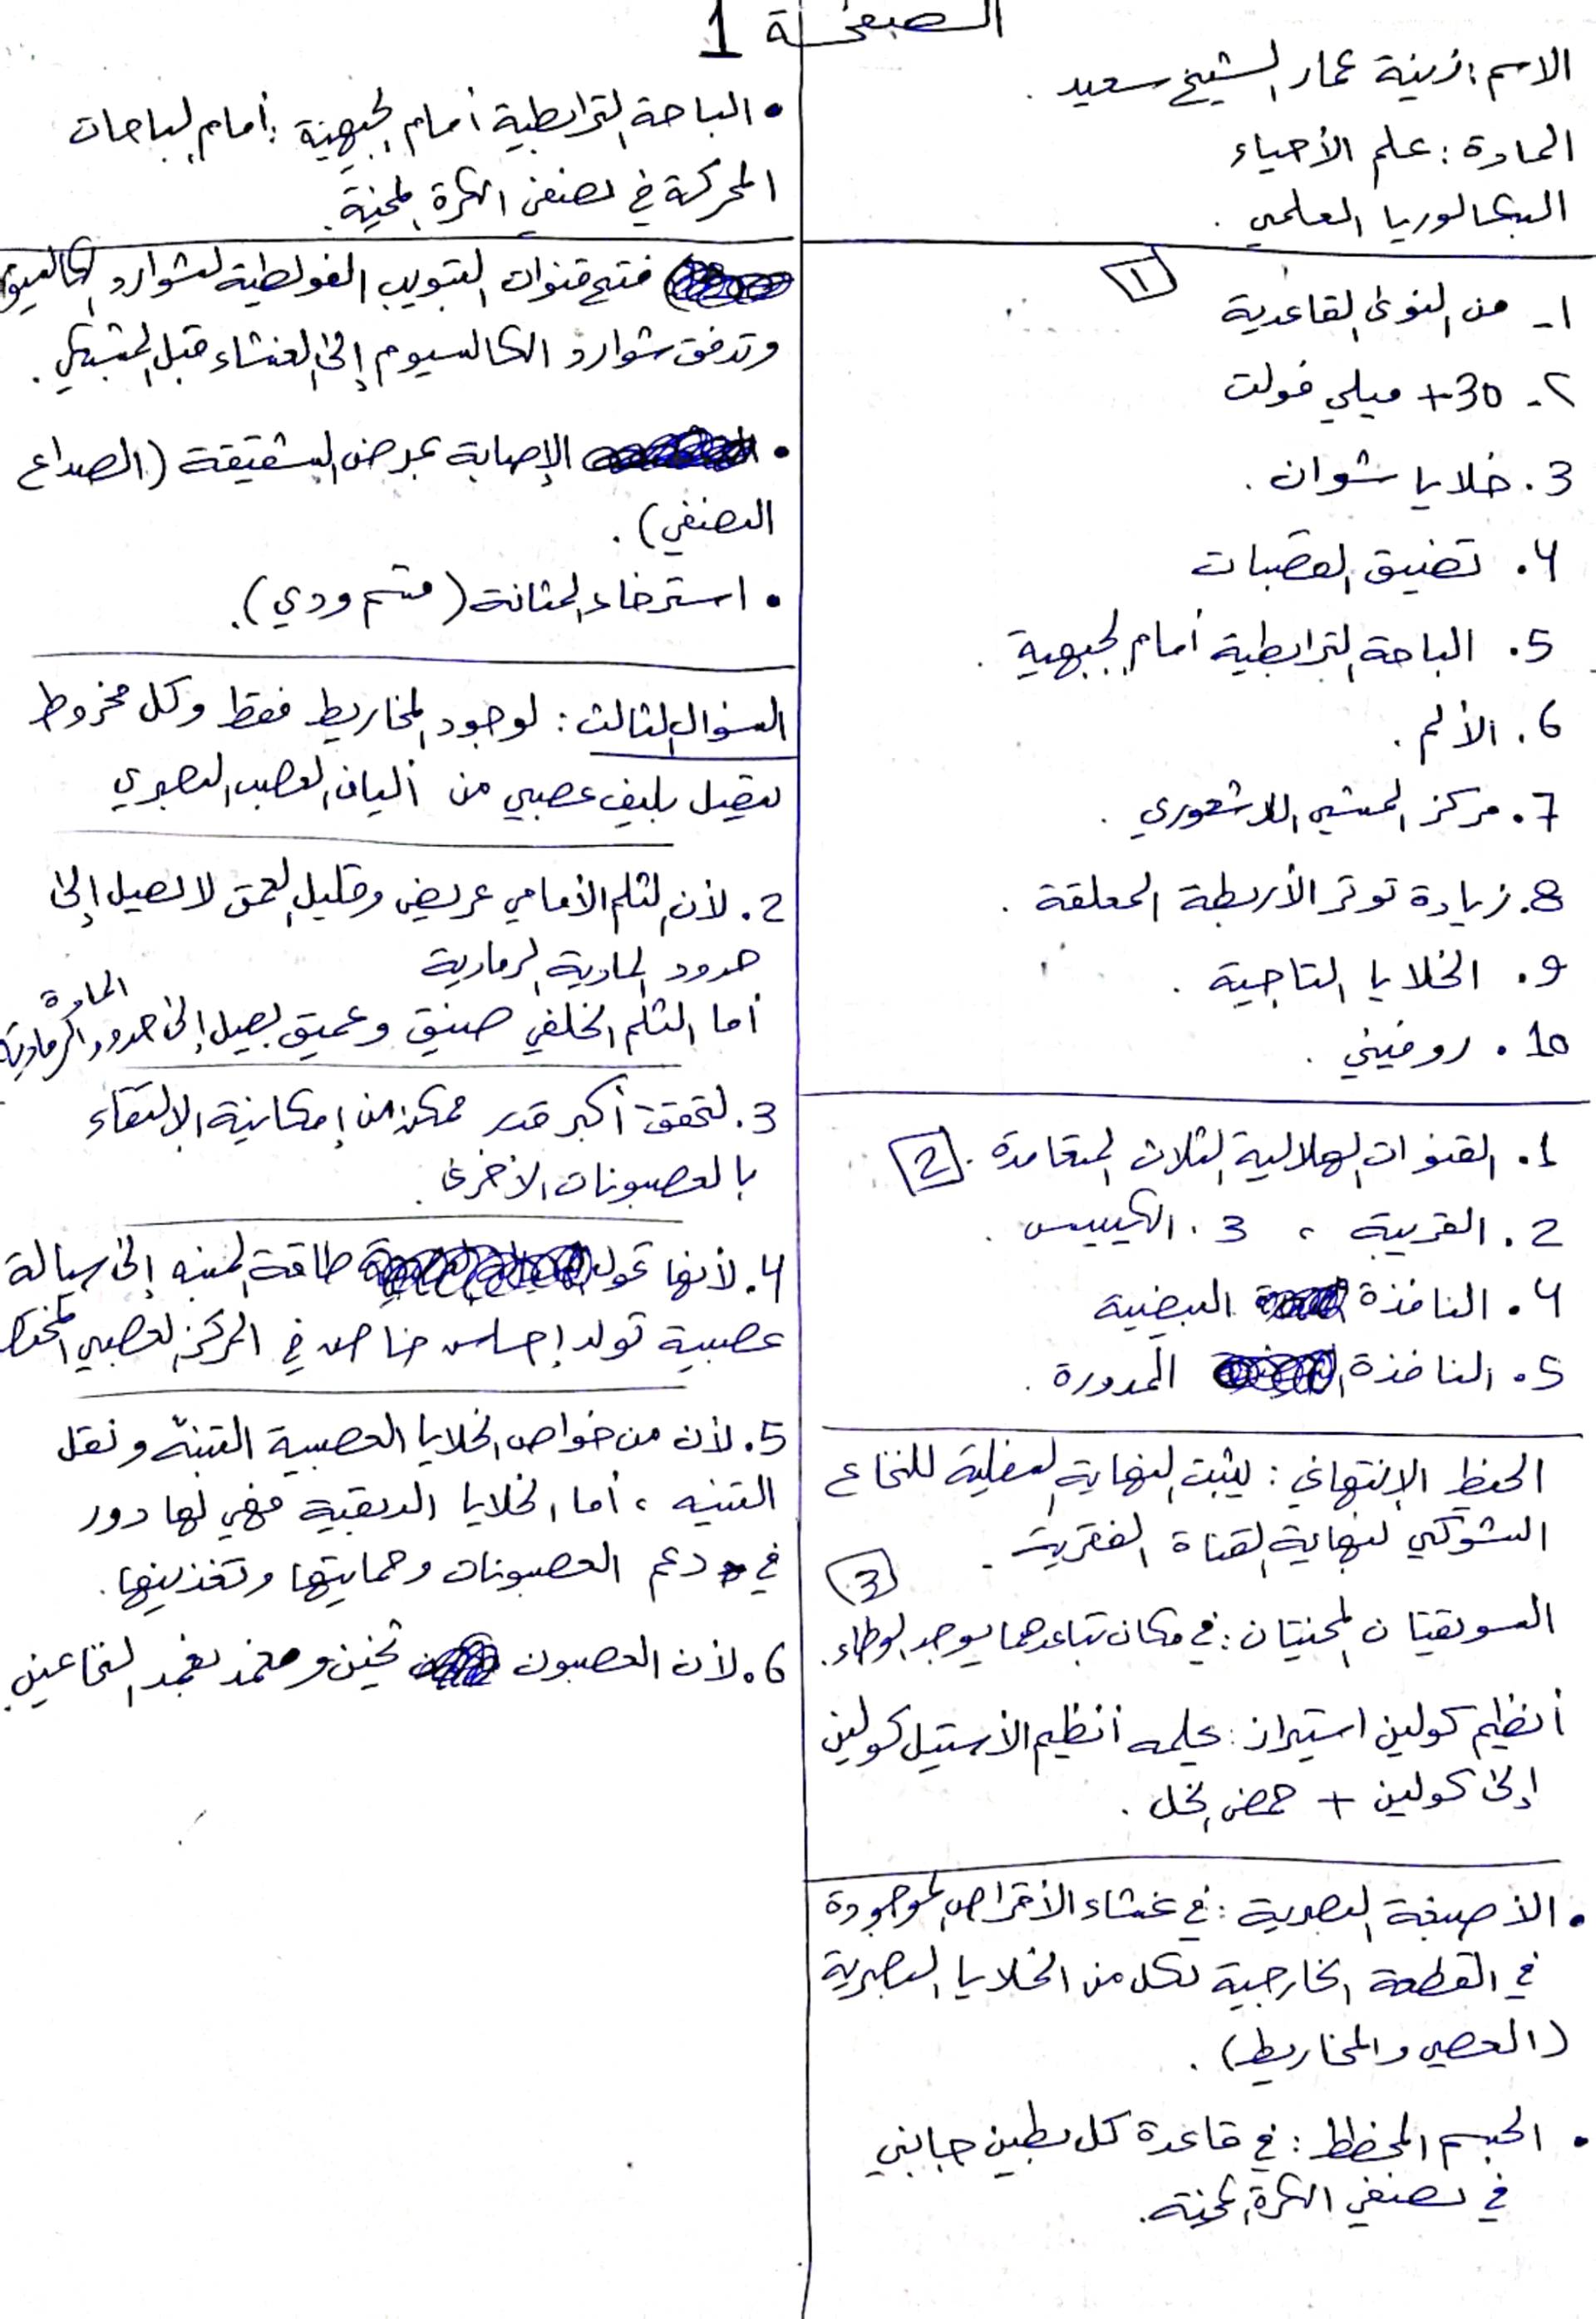 الصفحة 1
الاسم: زينة عمار الشيخ سعيد.
المادة: علم الأحياء
البكالوريا العلمي.
1
1- من النوى القاعدية
2- +30 ميلي فولت
3. خلايا شوان.
4. تضيق القصبات
5. الباحة الترابطية أمام الجبهية.
6. الألم.
7. مركز المشي اللاشعوري.
8. زيادة توتر الأربطة المعلقة.
9. الخلايا التاجية.
10. روفيني.
1. القنوات الهلالية الثلاث المتعامدة. 2
2. القريبة، 3. الكييس.
4. النافذة البيضية
5. النافذة المدورة.
الخيط الانتهائي: يثبت النهاية السفلية للنخاع
الشوكي لنهاية القناة الفقرية.
3
السويقتان المخيتان: في مكان تباعدهما يوجد الوطاء.
أنظيم كولين استيراز: يحلمه أنظيم الأستيل كولين
إلى كولين + حمض الخل.
• الأصبغة البصرية: في غشاء الأقراص الموجودة
في القطعة الخارجية لكل من الخلايا البصرية
(العصي والمخاريط).
• الجسم المخطط: في قاعدة كل بطين جانبي
في نصفي الكرة المخية.
• الباحة الترابطية أمام الجبهية: أمام الباحات
المحركة في نصفي الكرة المخية.
فتح قنوات التبويب الفولطية لشوارد الكالسيوم
وتدفق شوارد الكالسيوم إلى الغشاء قبل المشبكي.
• الإصابة بمرض الشقيقة (الصداع
النصفي).
• استرخاء المثانة (قسم ودي).
السؤال الثالث: لوجود المخاريط فقط وكل مخروط
يتصل بليف عصبي من ألياف العصب البصري
2. لأن الثلم الأمامي عريض وقليل العمق لا يصل إلى
حدود المادية الرمادية
أما الثلم الخلفي ضيق وعميق يصل إلى حدود المادة الرمادية
3. لتحقق أكبر قدر ممكن من إمكانية الالتقاء
بالعصبونات الأخرى.
4. لأنها تحول طاقة المنبه إلى سيالة
عصبية تولد إحساس خاص في المركز العصبي المختص
5. لأن من خواص الخلايا العصبية التنبه ونقل
التنبيه، أما الخلايا الدبقية فهي لها دور
في دعم العصبونات وحمايتها وتغذيتها.
6. لأن العصبون ثخين ومغمد بغمد النخاعين.